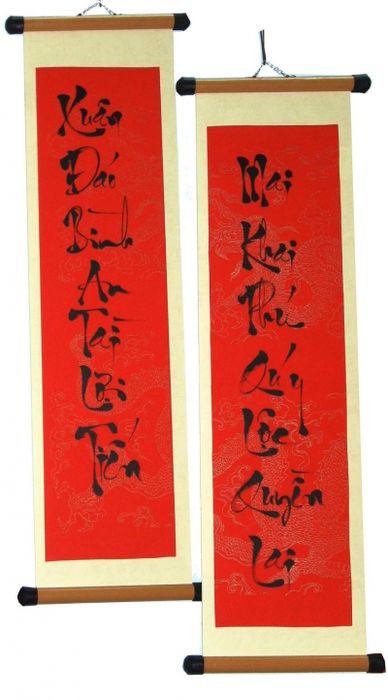 Xuân
Đáo
Bình
An
Tài
Lợi
Tiến
Mai
Khai
Phú
Quý
Lộc
Quyền
Lai